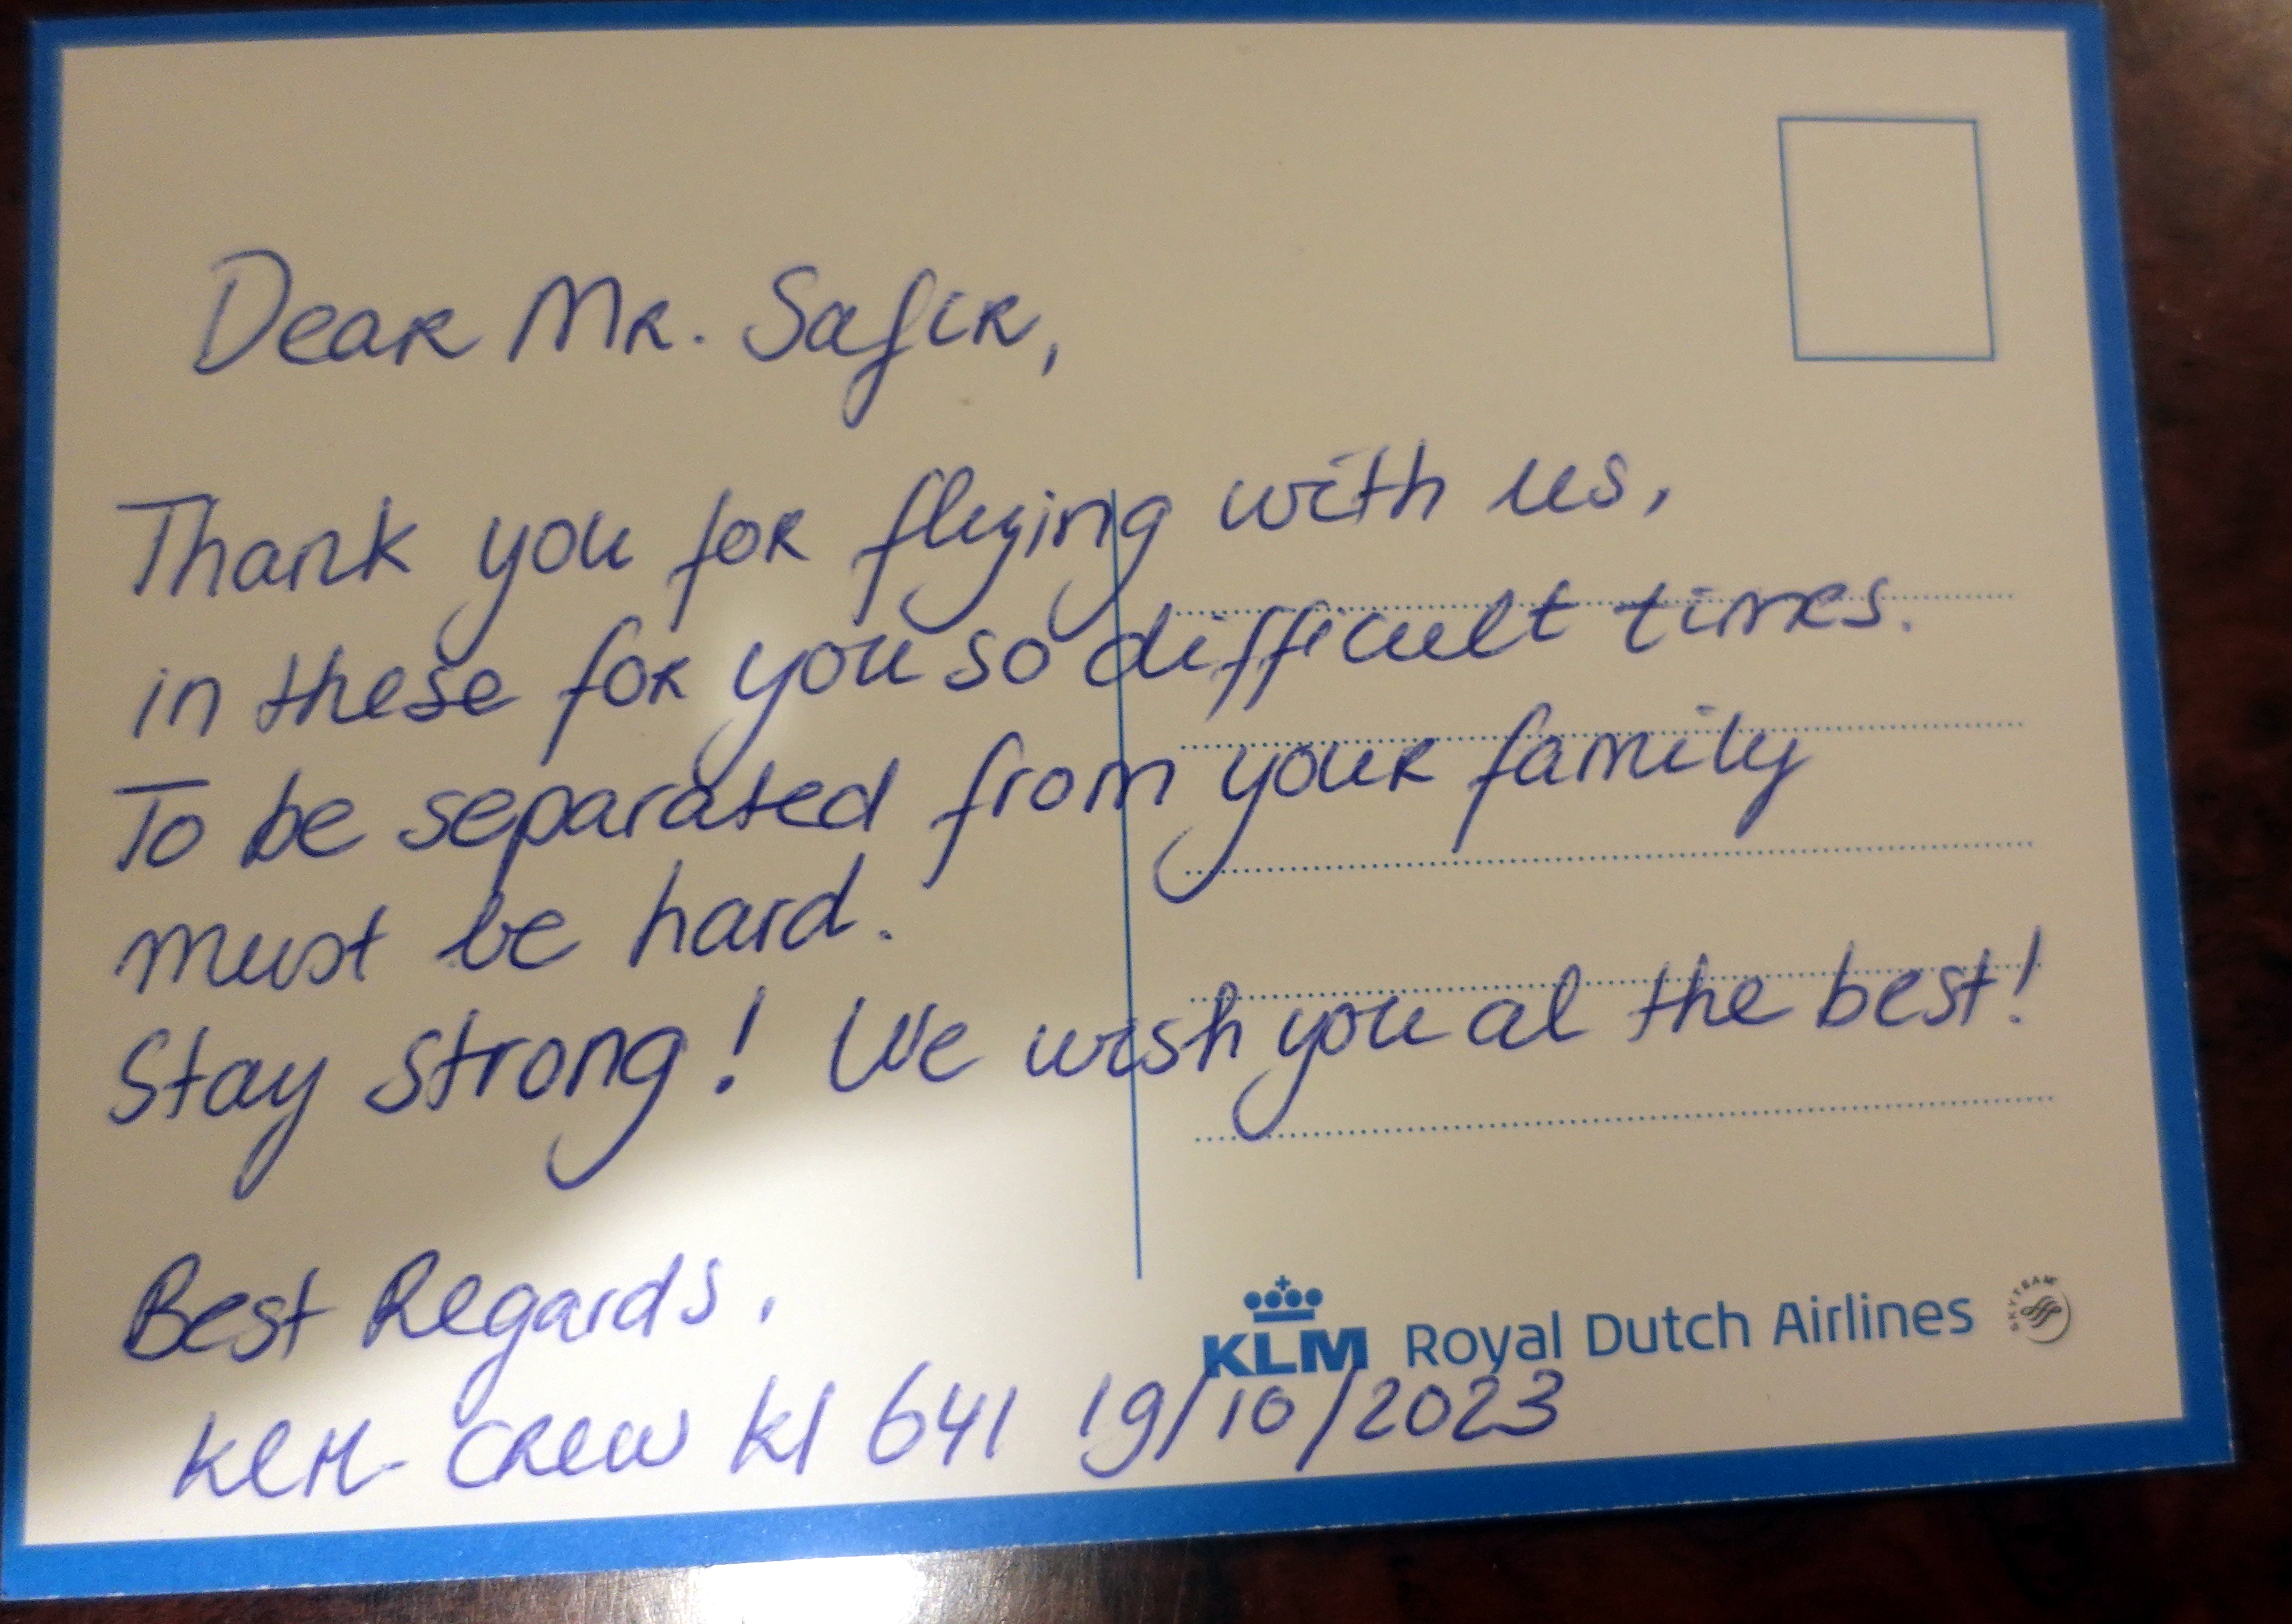 Dear Mr. Safir,
Thank you for flying with us,
in these for you so difficult times.
To be separated from your family
must be hard.
Stay strong! We wish you al the best!
Best Regards,
KLM- Crew Kl 641 19/10/2023
KLM Royal Dutch Airlines SKYTEAM